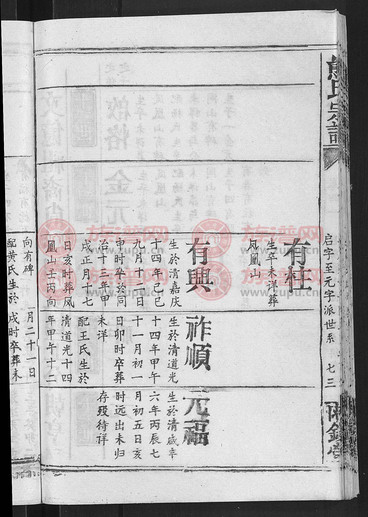 氏宗譜
启字至元字派世系
七三
有柱
生卒未详葬
凤凰山
有興
生於清嘉庆
十四年己巳
九月十二日
申时卒於同
治十三年甲
戌正月十七
日亥时葬凤
凰山壬丙向
向有碑
配黄氏生於
祚順
生於清道光
十四年甲午
十一月初一
日卯时卒葬
未洋
配王氏生於
清道光十四
年甲午十二
月二十一日
戌时卒葬未
元福
生於清咸丰
六年丙辰七
月初五日亥
时远出未归
存殁待祥